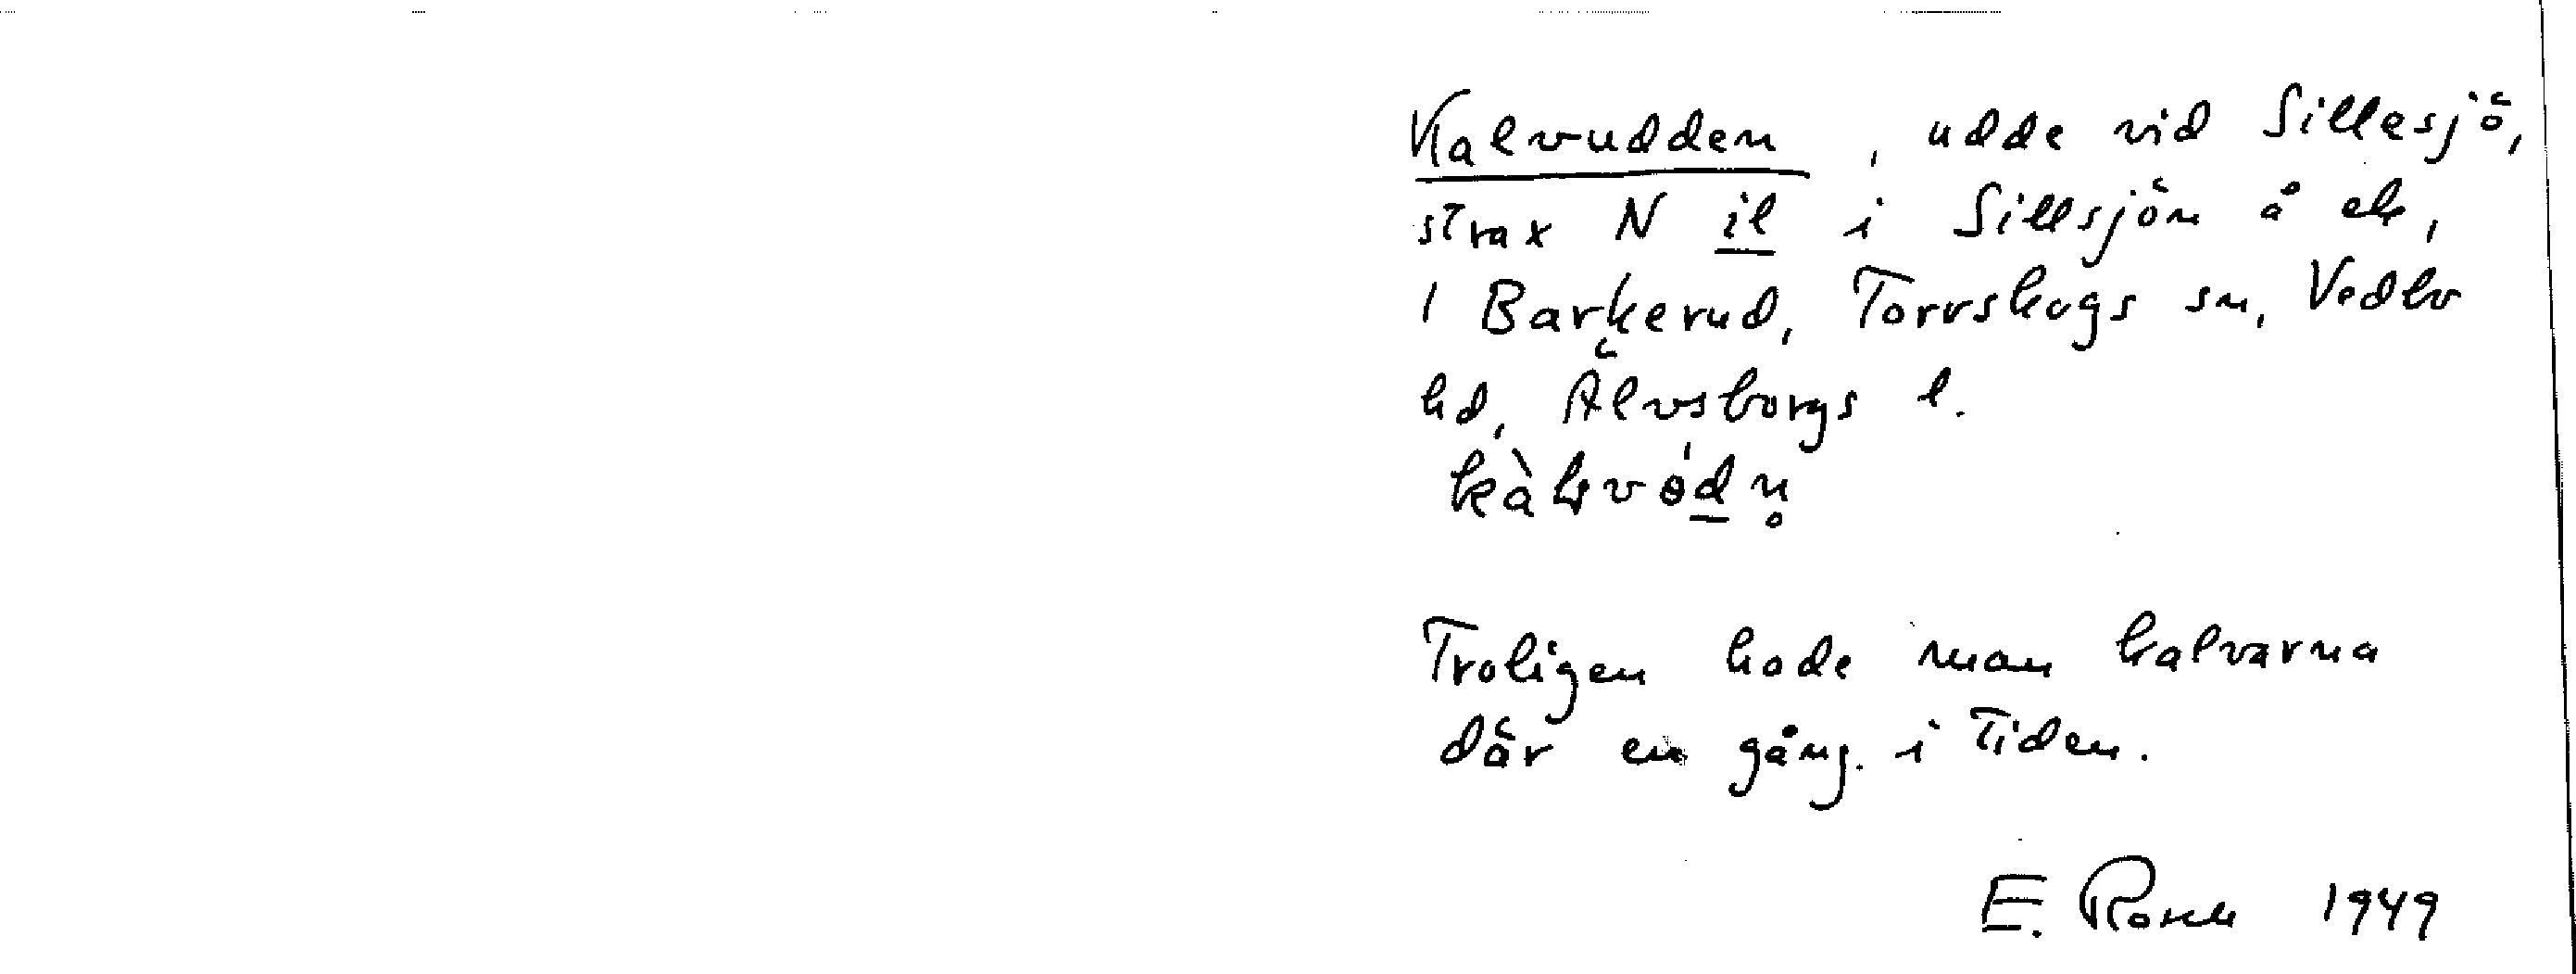 Kalvudden, udde vid Sillesjö,
strax N il i Sillsjön å ek,
1 Barkerud, Torrskogs sn, Vedbo
hd, Älvsborgs l.
Troligen hade man kalvarna
där en gång i tiden.
E. Rosell 1949